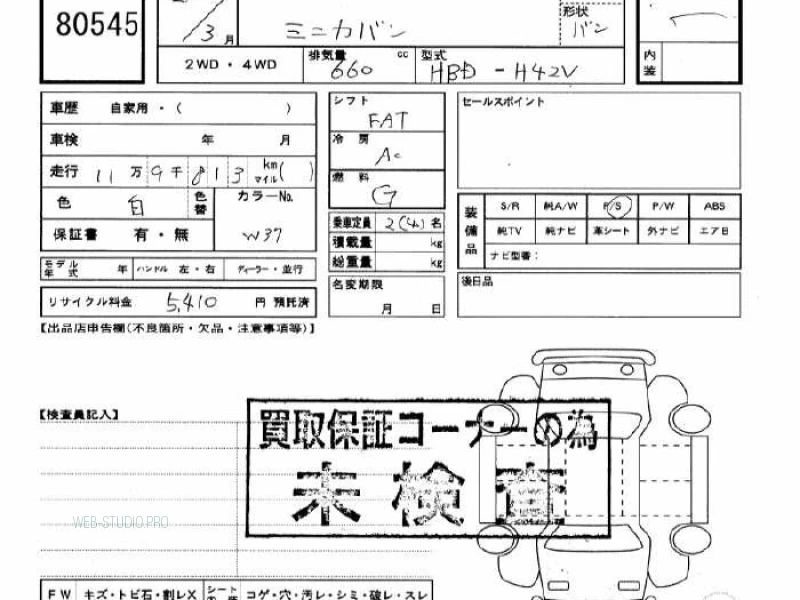 80545
3月
ミニカバン
形状
バン
2WD・4WD
排気量 cc
660
型式
HBD-H42V
内装
車歴 自家用・( )
車検 年 月
走行 11万9千813 km マイル( )
色 白 色替 カラーNo. W37
保証書 有・無
モデル年式 年 ハンドル 左・右 ディーラー・並行
リサイクル料金 5,410 円 預託済
シフト
FAT
冷房
AC
燃料
G
乗車定員 2(4)名
積載量 kg
総重量 kg
名変期限
月 日
セールスポイント
装備品
S/R 純A/W P/S P/W ABS
純TV 純ナビ 革シート 外ナビ エアB
ナビ型番:
後日品
【出品店申告欄(不良箇所・欠品・注意事項等)】
【検査員記入】
買取保証コーナーの為
未検査
WEB-STUDIO.PRO
FW キズ・トビ石・割レX シート コゲ・穴・汚レ・シミ・破レ・スレ